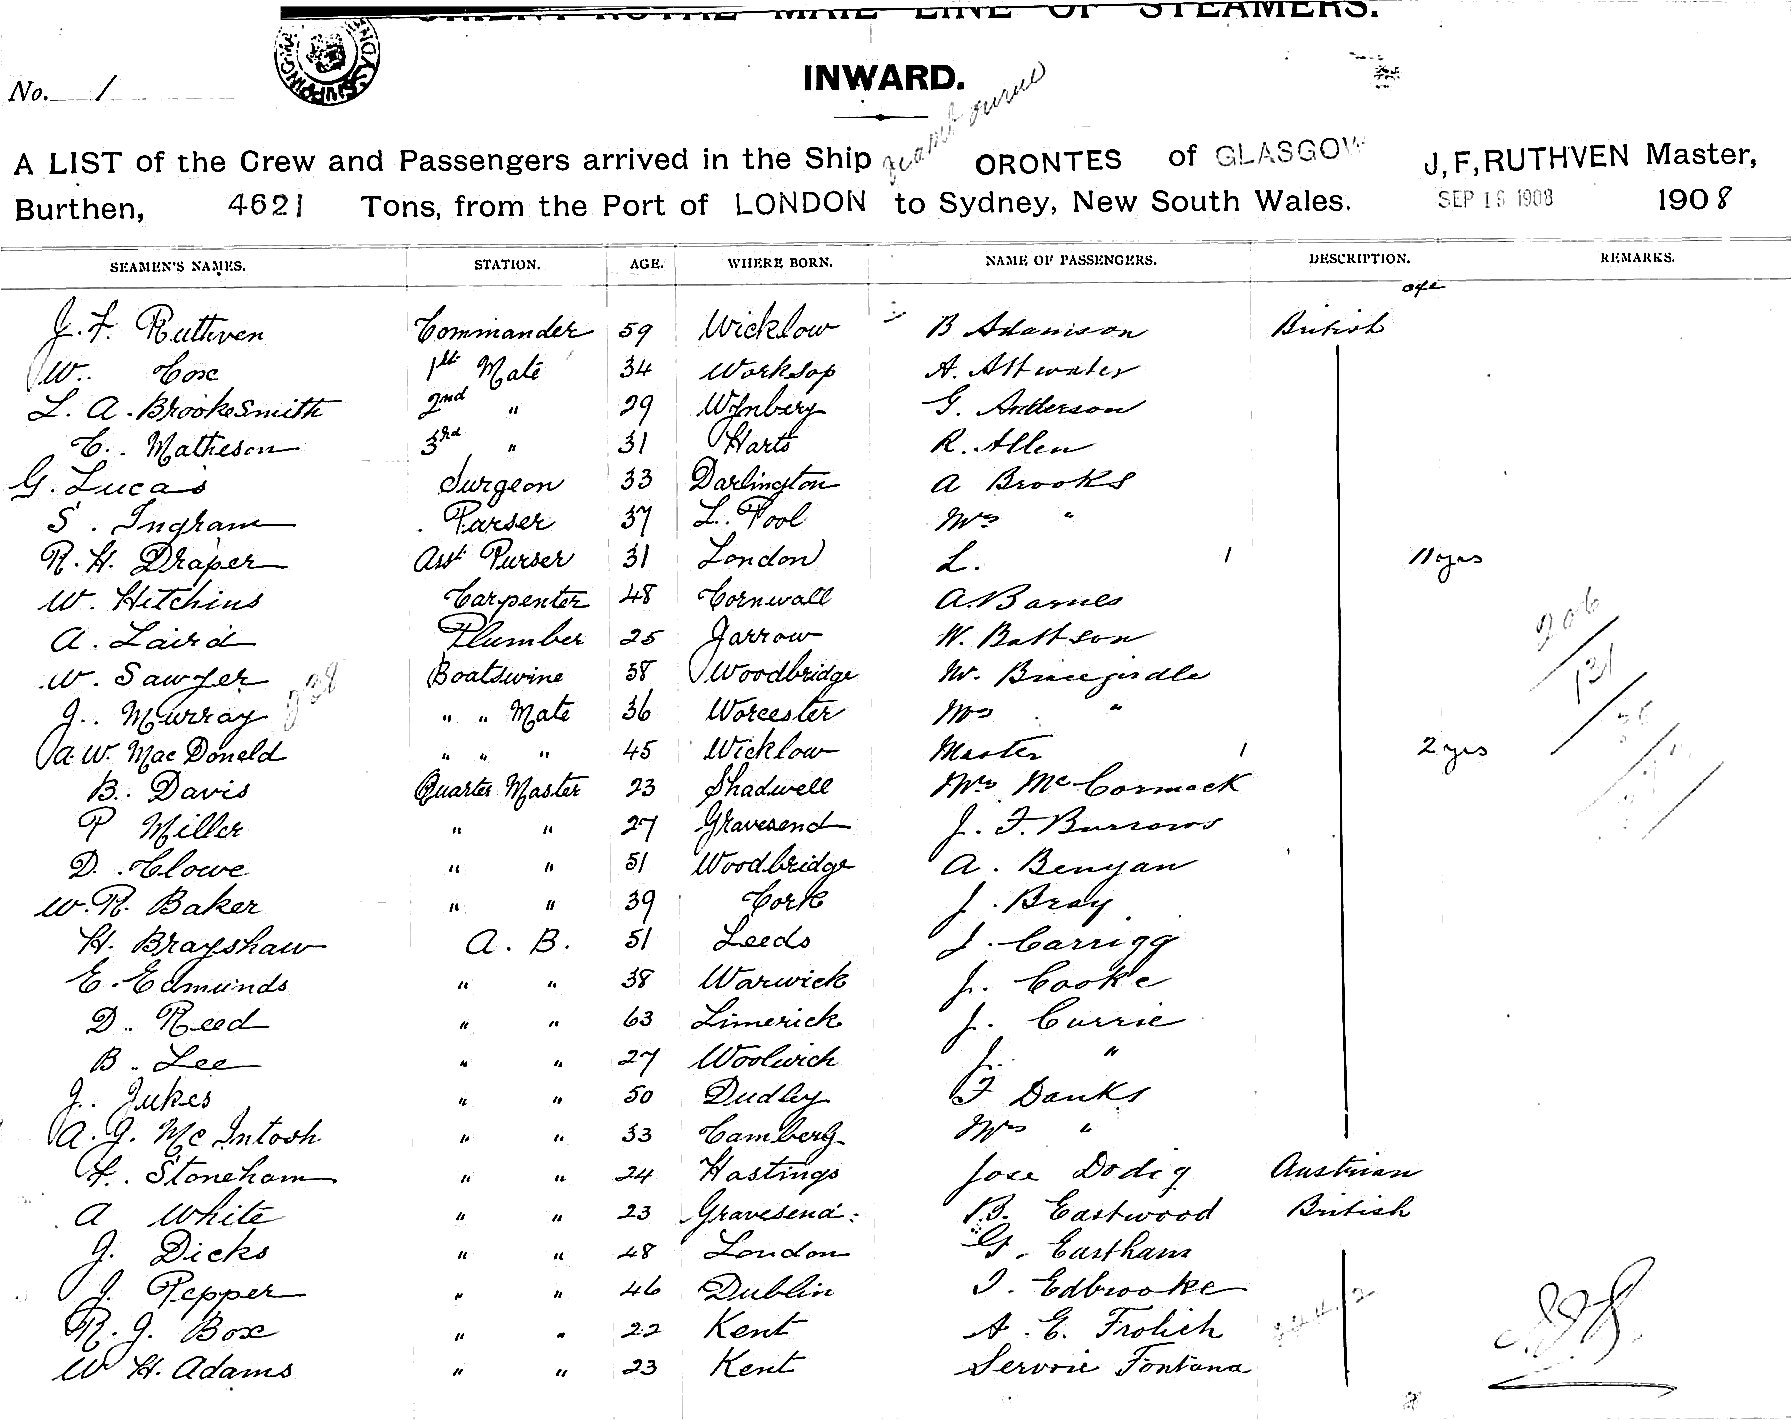 ORIENT ROYAL MAIL LINE OF STEAMERS.
INWARD.
No. 1
A LIST of the Crew and Passengers arrived in the Ship ORONTES of GLASGOW J, F, RUTHVEN Master,
Burthen, 4621 Tons, from the Port of LONDON to Sydney, New South Wales. SEP 16 1908 1908
SEAMEN'S NAMES. STATION. AGE. WHERE BORN. NAME OF PASSENGERS. DESCRIPTION. REMARKS.
age
J. F. Ruthven Commander 59 Wicklow B Adamson British
W.. Cox 1st Mate 34 Worksop A. Attwater
L. A. BrookeSmith 2nd " 29 Wynberg G. Anderson
C.. Matheson 3rd " 31 Harts R. Allen
G. Lucas Surgeon 33 Darlington A Brooks
S. Ingram Parser 37 L. Pool Mrs "
R. H. Draper Asst Purser 31 London L. 1 11 yrs
W. Hitchins Carpenter 48 Cornwall A. Barnes
A. Laird Plumber 25 Jarrow W. Battson
W. Sawyer Boatswine 38 Woodbridge W. Bracegirdle
J.. Murray " " Mate 36 Worcester Mrs "
A. W. MacDonald " " " 45 Wicklow Master 1 2 yrs
B. Davis Quarter Master 23 Shadwell Mrs McCormack
P Miller " " 27 Gravesend J. F. Burrows
D. Clowe " " 51 Woodbridge A. Benyan
W. R. Baker " " 39 Cork J. Bray
H. Brayshaw A. B. 51 Leeds J. Carrigg
E. Edmunds " " 38 Warwick J. Cooke
D. Reed " " 63 Limerick J. Currie
B. Lee " " 27 Woolwich J. "
J. Jukes " " 50 Dudley F Danks
A. J. McIntosh " " 33 Camberg Mrs "
F. Stoneham " " 24 Hastings Jose Dodig Austrian
A White " " 23 Gravesend: B. Eastwood British
J. Dicks " " 48 London G. Eastham
J. Pepper " " 46 Dublin I. Edbrooke
R. J. Box " " 22 Kent A. E. Frolich
W H. Adams " " 23 Kent Fontana
206
131